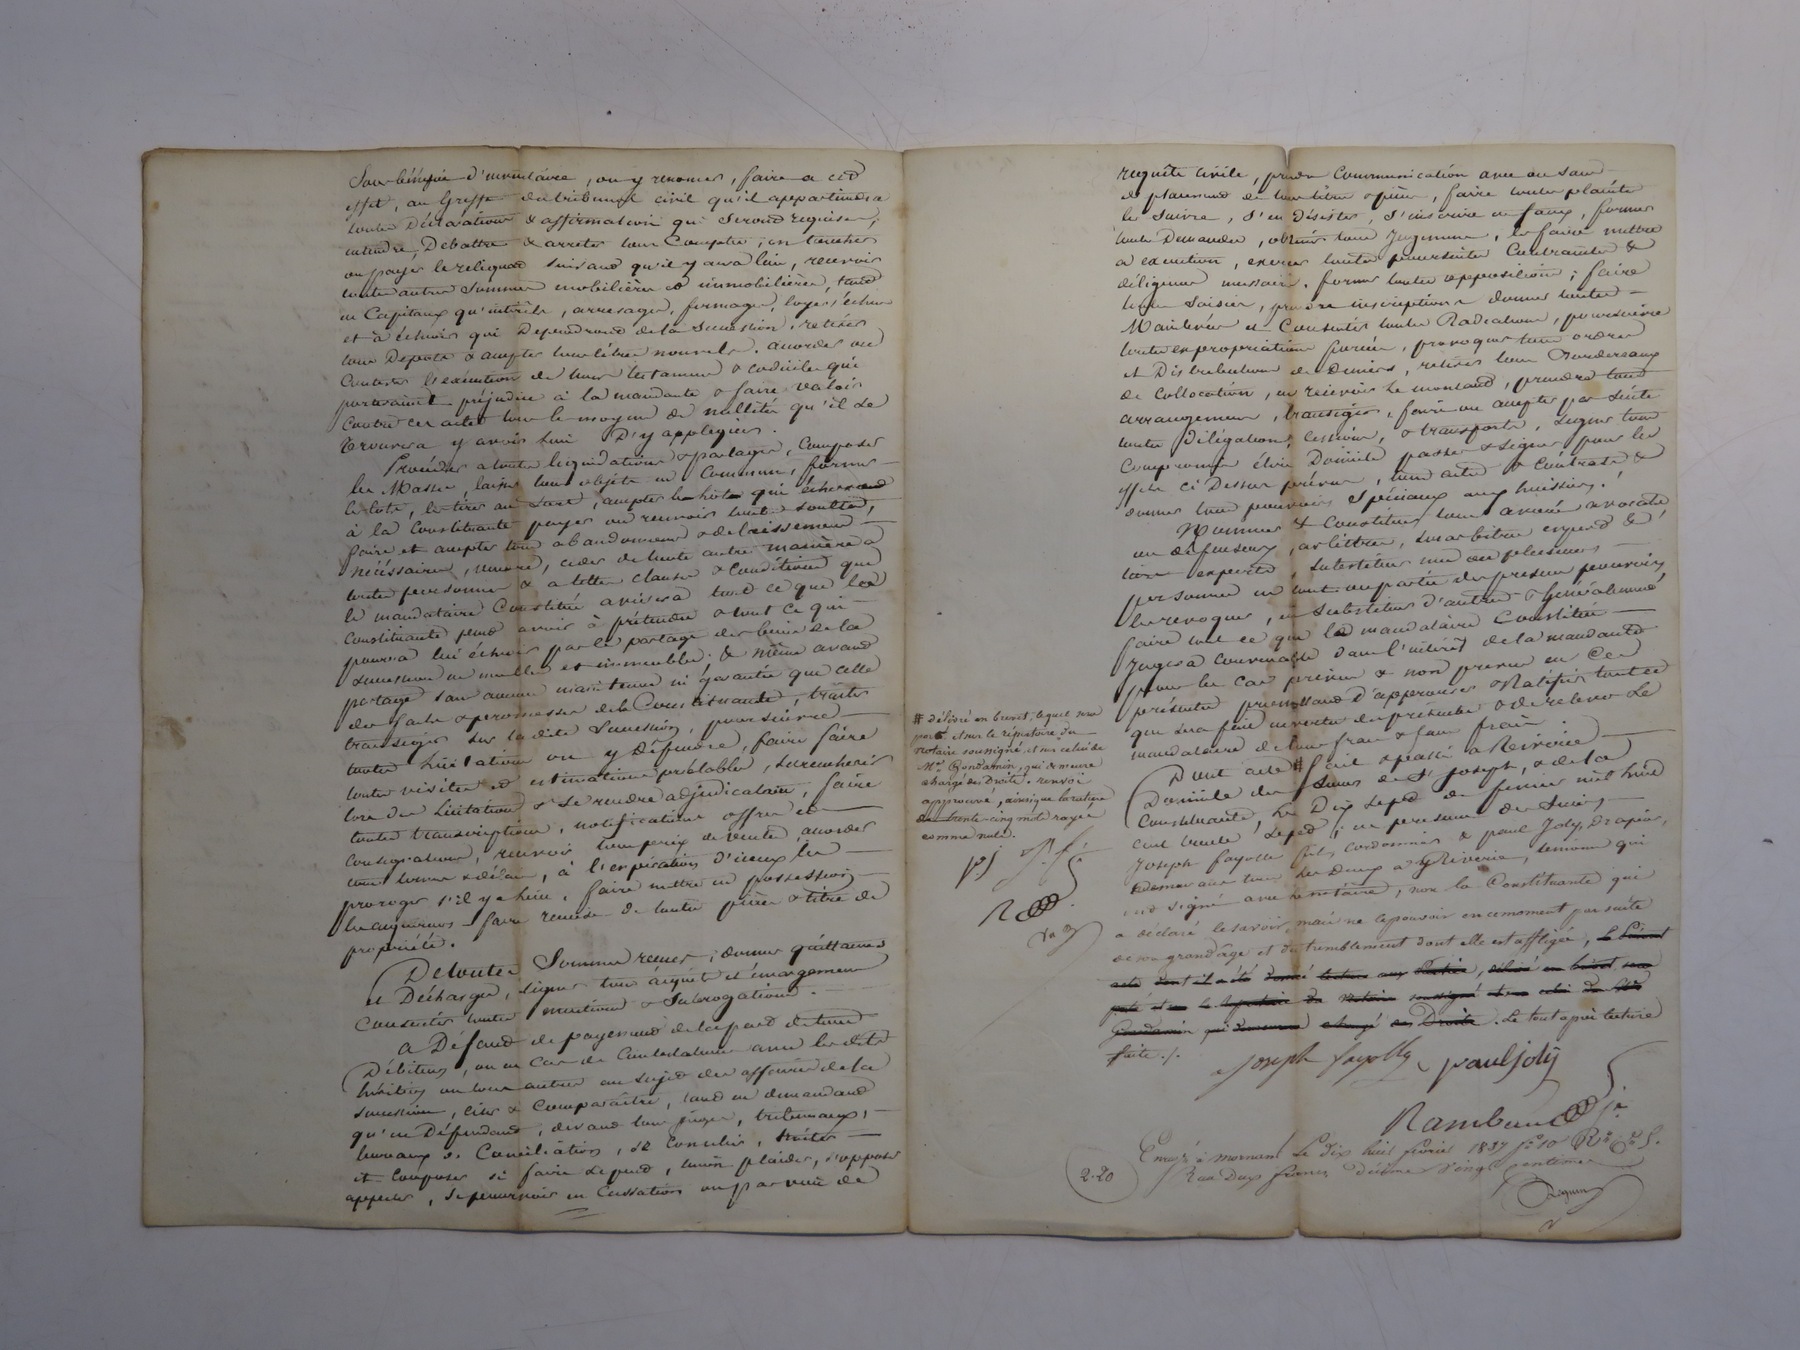 Sous bénéfice d'inventaire, ou y renoncer, faire a cet
effet, au Greffe du tribunal civil qu'il appartiendra
toutes Déclarations & affirmations qui seront requises;
entendre, Débattre & arreter tous Comptes, en toucher
ou payer le reliquat suivant qu'il y aura lieu, recevoir
toutes autres sommes mobilières et immobilières, tant
en Capitaux qu'intérêts, arrerages, fermages, loyers échus
et à échoir qui Dépendront de la Succession, retirer
tous Dépots & accepter tous titres nouvels. accorder ou
Contester l'exécution de tous testamens & codiciles qui
porteraient préjudice à la mandante & faire valoir
Contre ces actes tous les moyens de nullités qu'il se
trouvera y avoir lieu D'y appliquer.
Procéder a toutes liquidations & partages, Composer
les Masses, laisser tous objets en Commun, former
les lots, les tirer au sort, accepter les lots qui écherront
à la Constituante payer ou recevoir toutes soultes,
faire et accepter tous abandonnemens & délaissemens
nécéssaires, vendre, céder de toute autre manière à
toutes personnes & a telles clauses & Conditions que
le mandataire Constitué avisera tout ce que la
Constituante peut avoir à prétendre & tout ce qui
pourra lui échoir par le partage des biens de la
succession en meubles et immeubles; & même avant
partage sans aucune maintenue ni garantie que celle
des faits & promesses de la Constituante, traiter
transiger sur ladite Succession, poursuivre
toutes Licitations ou y Défendre, faire faire
toutes visites et estimations préalables, surenchérir
lors des Licitations & se rendre adjudicataire, faire
toutes transcriptions, notifications offres et
Consignations, recevoir tous prix de ventes, accorder
tous termes & délais, à l'expiration d'iceux les
proroger s'il y a lieu, faire mettre en possession
les acquéreurs faire remise de toutes pièces & titres de
propriété.
De toutes Sommes reçues, donner quittances
et Décharges, signer tous acquits et émargemens
Consentir toutes mentions & Subrogations.
A Défaut de payement de la part de tous
Débiteurs, ou en Cas de Contestations avec lesdits
héritiers ou tous autres au sujet des affaires de la
succession, citer & Comparaître, tant en demandant
qu'en Défendant, devant tous juges, tribunaux,
bureaux de Conciliation, se Concilier, traiter
et Composer si faire se peut, sinon plaider, s'opposer
appeler, se pourvoir en Cassation ou par voie de
requête civile, prendre Communication avec ou sans
déplacement de tous titres & pièces, faire toutes plaintes
les suivre, s'en Désister, s'inscrire en faux, former
toutes Demandes, obtenir tous Jugemens, les faire mettre
a exécution, exercer toutes poursuites Contraintes &
diligences nécessaires. former toutes oppositions; faire
toutes saisies, prendre inscriptions donner toutes
Mainlevées et Consentir toutes Radiations, poursuivre
toutes expropriations forcées, provoquer tous ordres
et Distributions de Deniers, retirer tous Bordereaux
de Collocation, en recevoir le montant, prendre tous
arrangemens, transiger, faire ou accepter par suite
toutes délégations, cessions, & transports, signer tous
Compromis élire Domicile passer & signer pour les
effets ci Dessus prévus, tous actes & Contrats &
donner tous pouvoirs Spéciaux aux huissiers.
Nommer & Constituer tous avoués avocats
ou défenseurs, arbitres, surarbitres experts &
tiers experts, substituer une ou plusieurs
personnes en tout ou partie des présens pouvoirs,
les revoquer, en substituer d'autres & Généralement
faire tout ce que le mandataire Constitué
Jugera Convenable dans l'intérêt de la mandante
pour les cas prévus & non prévus en Ces
présentes promettant d'approuver & Ratifier tout ce
qui sera fait en vertu des présentes & de relever le
mandataire de tous frais & faux frais.
Dont acte # fait & passé a Riverie
Domicile des Sœurs de St Joseph, & de la
Constituante, Le Dix sept de fevrier mil huit
cent trente Sept, en presence de Sieurs
Joseph fayolle fils, cordonnier & paul Joly, drapier,
demeurant tous les Deux a Riverie, temoins qui
ont signé avec le notaire, non la Constituante qui
a déclaré le savoir, mais ne le pouvoir en ce moment par suite
de son grand âge et du tremblement dont elle est affligée, le présent
acte dont il a été donné lecture aux Parties, délivré en brevet sera
porté et sur le répertoire du Notaire soussigné et sur celui de Me
Gondamin qui demeure chargé des Droits. Le tout après lecture
faite ./.
# délivré en brevet; lequel sera
porté et sur le répertoire du
notaire soussigné, et sur celui de
Me Gondamin, qui demeure
chargé des Droits. renvoi
approuvé, ainsi que la rature
de trente-cinq mots rayés
comme nuls.
pJ J.f.
R
Joseph fayolle paul joly
Rambaud Jne
Enreg. à Mornant Le dix huit fevrier 1837
Reçu Deux francs Décime Vingt Centimes
2.20